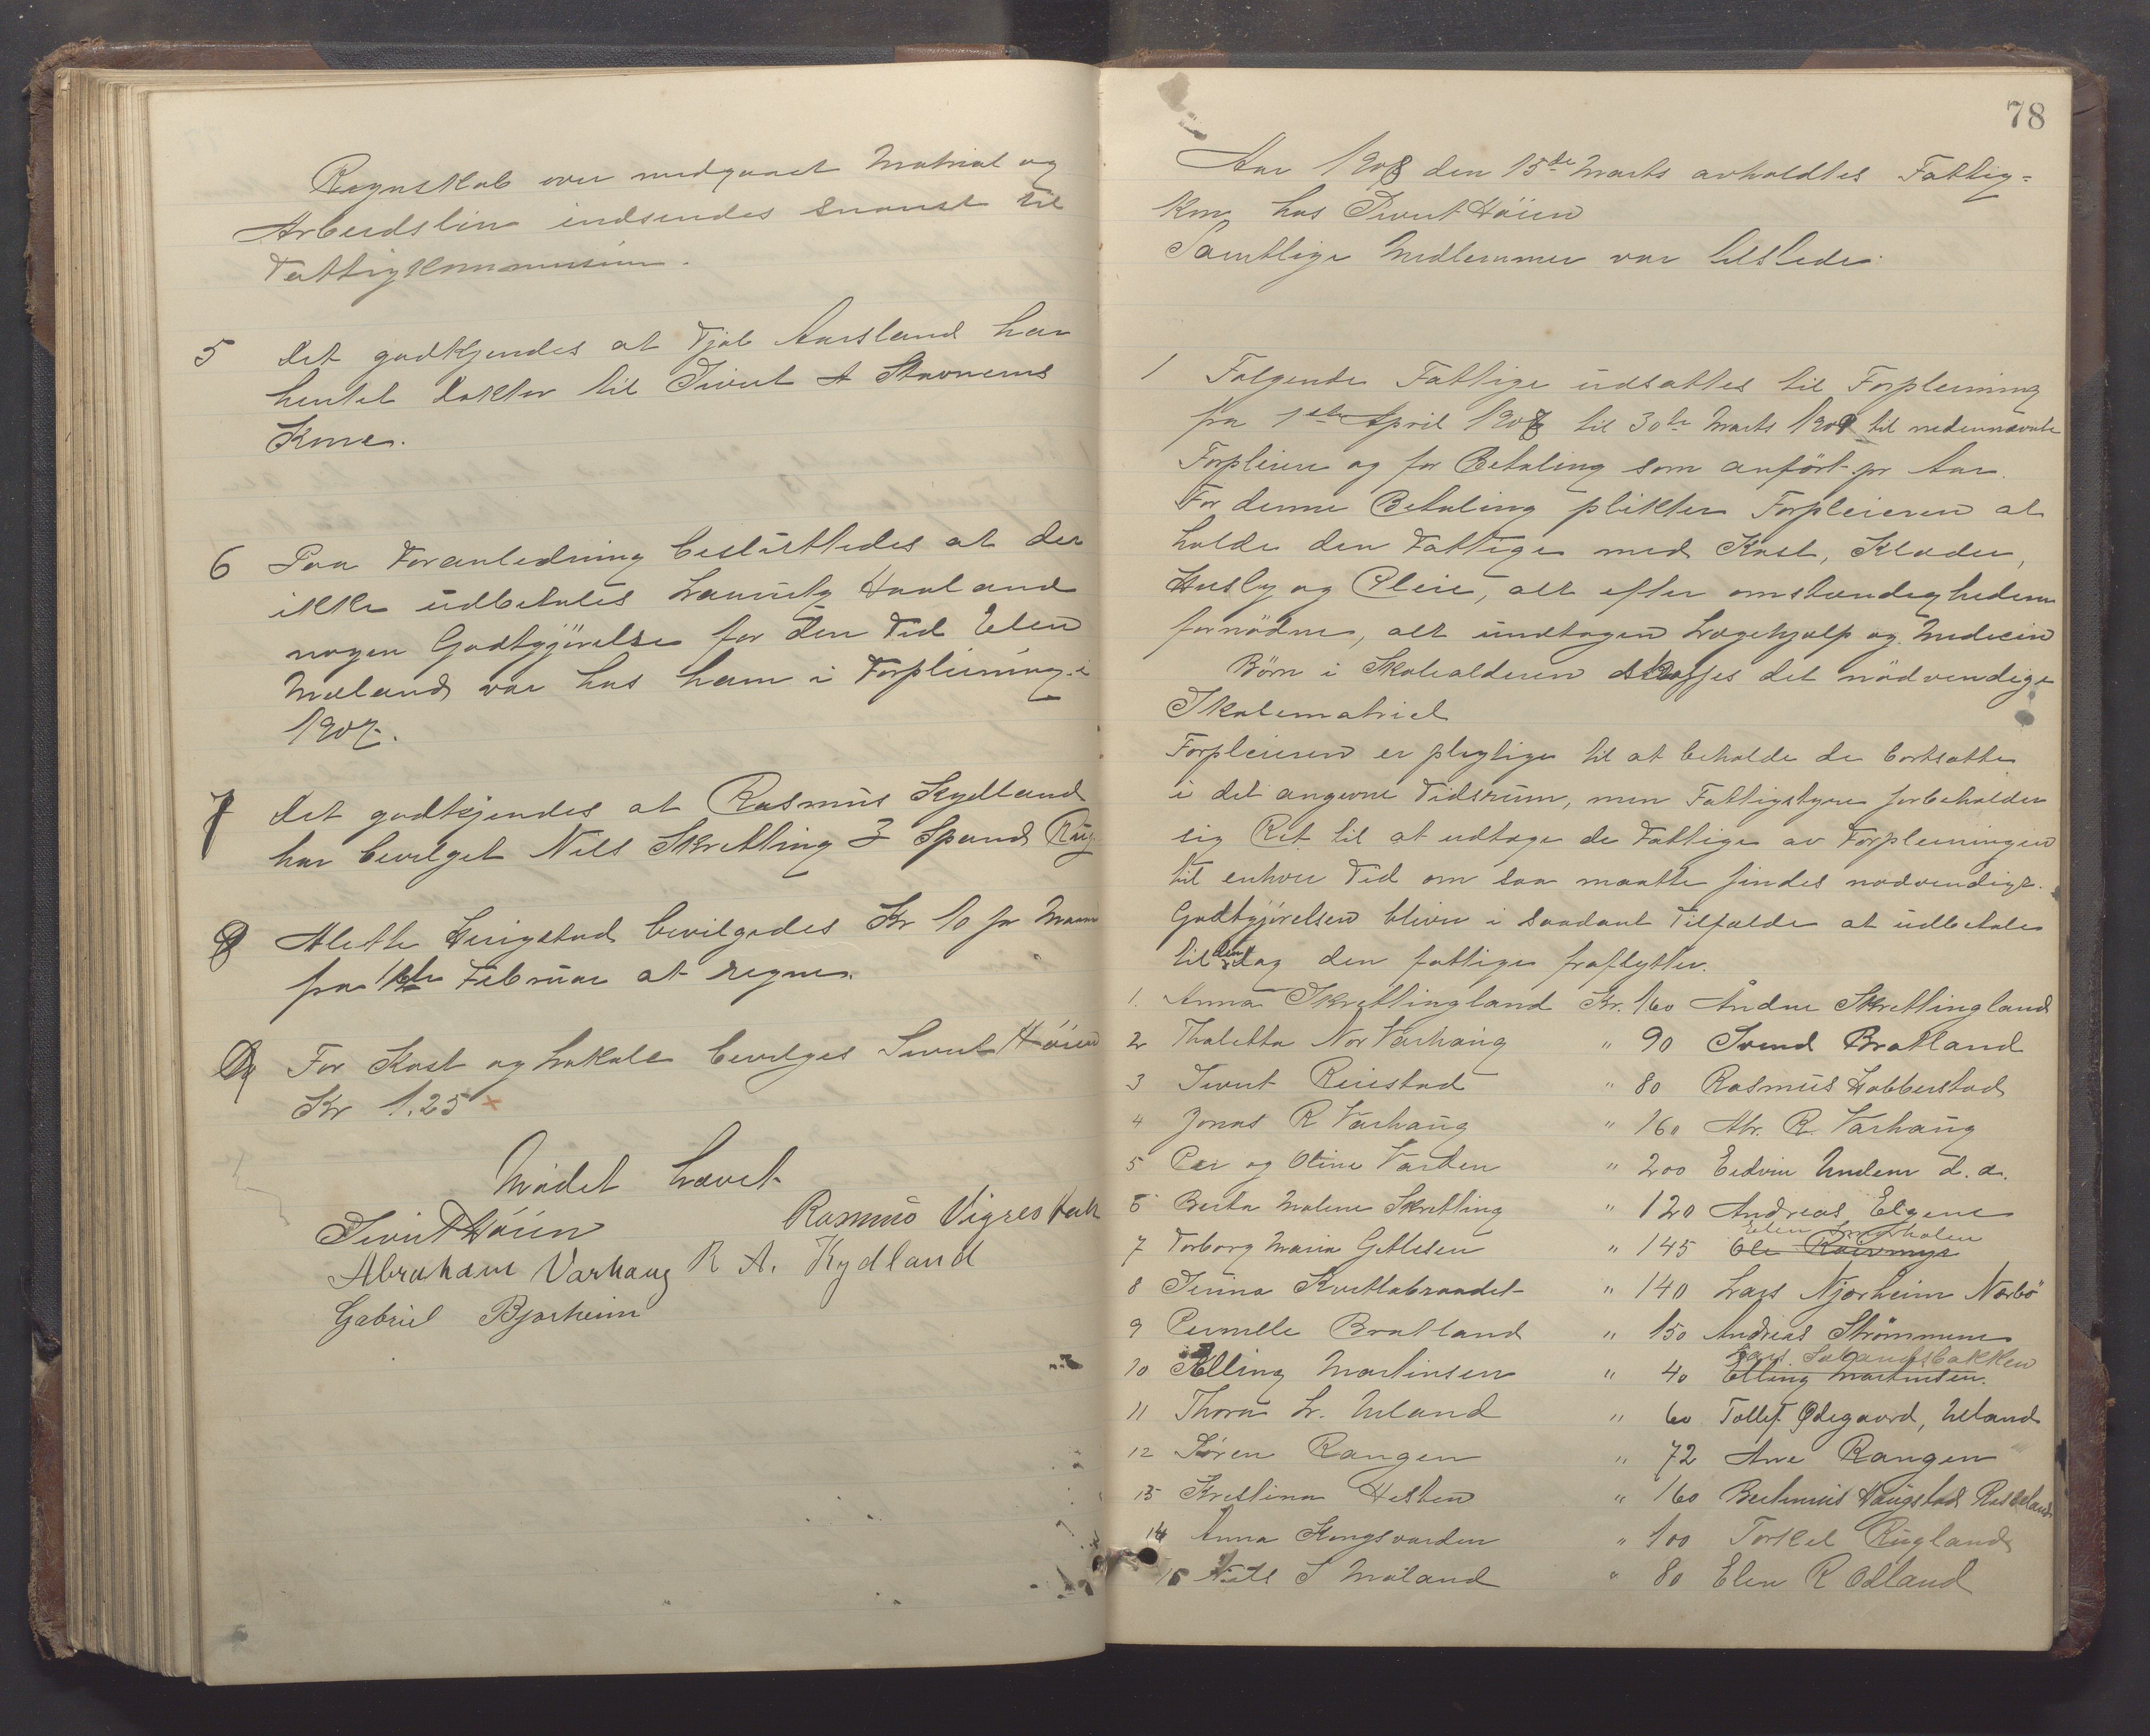 Regnskab over medgaaet Matrial og
Arbeidslön indsendes snarest til
Fattigkommmisionen.
5 Det godkjendes at Tjøl Aarsland har
hentet Doktor til Sivert A Stavnems
Kone.
6 Paa Foranledning besluttedes at der
ikke udbetales Lauritz Haaland
nogen Godtgjörelse for den Tid Elen
Mæland var hos ham i Forpleining i
1907.
7 Det godkjendes at Rasmus Kydland
har bevilget Nils Skretting 3 Spand Rug.
8 Alette Herigstad bevilgedes Kr 10 pr Maan
fra 1ste Februar at regne.
9 For Kost og Lokale bevilges Sivert Höien
Kr 1.25
Mödet hævet
Sivert Höien Rasmus Vigrestad
Abraham Varhaug R A. Kydland
Gabriel Bjorheim
78
Aar 1908 den 15de Marts avholdtes Fattig=
kom hos Sivert Höien
Samtlige Medlemmer var tilstede.
1 Følgende Fattige udsattes til Forpleining
fra 1ste April 1908 til 30te Marts 1909 til nedennævnte
Forpleiere og for Betaling som anfört pr Aar.
For denne Betaling plikter Forpleieren at
holde den Fattige med Kost, Klæder,
Husly og Pleie, alt efter omstændighederne
fornödne, alt undtagen Lægehjælp og Medicin
Börn i Skolealderen skaffes det nödvendige
Skolematriel
Forpleieren er plegtige til at beholde de bortsatte
i det angivne Tidsrum, men Fattigstyre forbeholder
sig Ret til at udtage de Fattige av Forpleiningen
til enhver Tid om saa maatte findes nødvendigt.
Godtgjörelsen bliver i saadant Tilfælde at udbetale
til den dag den fattige fraflytter.
1. Anna Skrettingland Kr. 160 Ådne Skrettingland
2 Thaletta Nor Varhaug " 90 Svend Bratland
3 Sivert Reiestad " 80 Rasmus Hobberstad
4 Jonas R Varhaug " 160 Abr. R. Varhaug
5 Per og Oline Varden " 200 Edvin Undem d. æ.
6 Berta Malene Skretting " 120 Andreas Elgene
Elen
7 Torborg Maria Gitlesen " 145 Ole
8 Sinna Kvitlabraadet " 140 Lars Njærheim Nærbö
9 Pernille Bratland " 150 Andreas Strömmene
Lars
10 Elling Martinsen " 40 Elling Martinsen.
11 Thora L. Ueland " 60 Tollef Ødegaard, Ueland
12 Sören Rangen " 72 Ane Rangen
13 Kristina Hesten " 160 Haugstad
14 Anna Kongsvarden " 100 Torkel Rugland
15 Nils S Mæland " 80 Elen R Odland